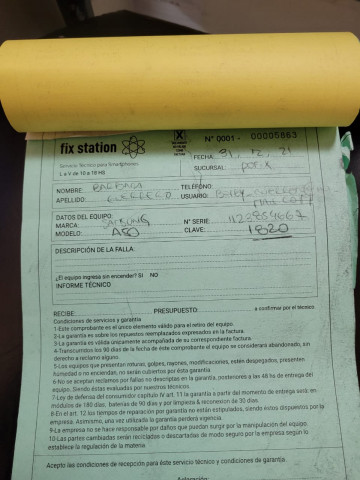 fix station
X
Nº 0001 - 00005863
Servicio Técnico para Smartphones
L a V de 10 a 18 HS
FECHA:
SUCURSAL
NOMBRE: BARBARA
TELÉFONO:
APELLIDO:
USUARIO:
DATOS DEL EQUIPO
MARCA: SAMSUNG
Nº SERIE
MODELO: A50
CLAVE: 1820
DESCRIPCIÓN DE LA FALLA:
¿El equipo ingresa sin encender? SI NO
INFORME TÉCNICO
RECIBE:
PRESUPUESTO:
a confirmar por el técnico
Condiciones de servicios y garantía
1-Este comprobante es el único elemento válido para el retiro del equipo.
2-La garantía es sobre los repuestos reemplazados expresados en la factura.
3-La garantía es válida únicamente acompañada de su correspondiente factura.
4-Transcurridos los 90 días de la fecha de éste comprobante el equipo se considerará abandonado, sin
derecho a reclamo alguno.
5-Los equipos que presenten roturas, golpes, mojados, modificaciones, estén despegados, presenten
humedad o no enciendan, no serán cubiertos por ésta garantía
6-No se aceptan reclamos por fallas no descriptas en la garantía, posteriores a las 48 hs de entrega del
equipo. Siendo éstas evaluadas por nuestros técnicos.
7-Ley de defensa del consumidor capítulo IV art. 11 la garantía a partir del momento de entrega será: en
módulos de 180 días, baterías de 90 días y por limpieza & reconexión de 30 días
8-En el art. 12 los tiempos de reparación por garantía no están estipulados, siendo éstos dispuestos por la
empresa. Asimismo, una vez utilizada la garantía perderá vigencia.
9-La empresa no se hace responsable por daños que puedan surgir por la manipulación del equipo.
10-Las partes cambiadas serán recicladas o descartadas de modo seguro por la empresa según lo
establece la regulación de la materia
Acepto las condiciones de recepción para éste servicio técnico y condiciones de garantía